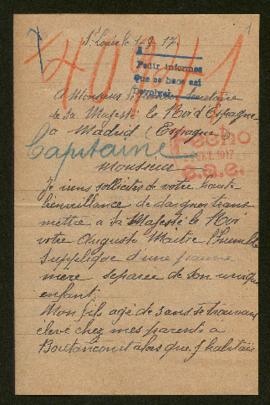 St Louis le 1.9.17
Pedir informes
que se hace así
A Monsieur Secrétaire
de Sa Majesté le Roi d'Espagne
a Madrid (Espagne)
Hecho
1917
Capitaine
Monsieur
Je viens solliciter de votre haute
bienveillance de daigner trans
mettre a Sa Majesté le Roi
votre Auguste Maitre l'humble
supplique d'une pauvre
mère séparée de son unique
enfant.
Mon fils agé de 3 ans se trouvant
élevé chez mes parents a
Boutancourt alors que j'habitais